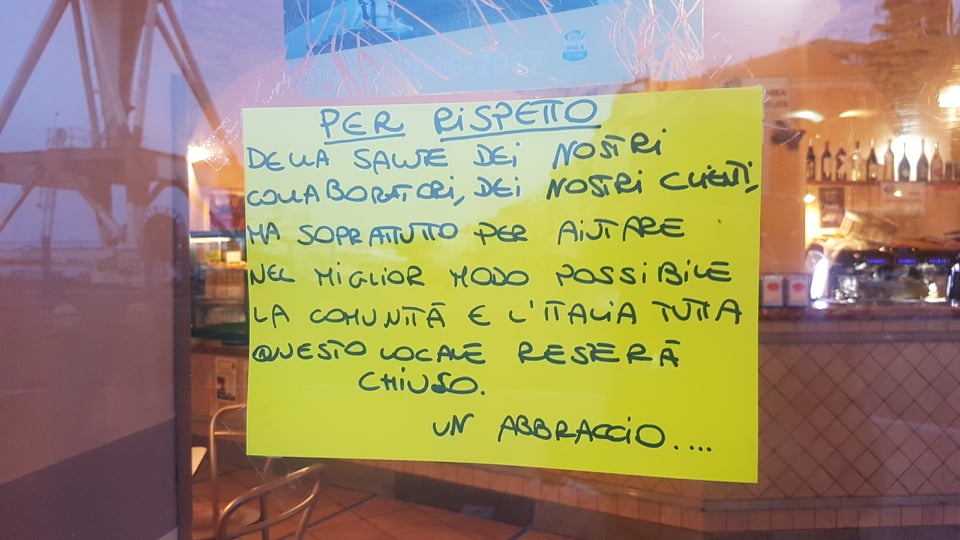 PER RISPETTO
DELLA SALUTE DEI NOSTRI
COLLABORATORI, DEI NOSTRI CLIENTI,
MA SOPRATTUTTO PER AIUTARE
NEL MIGLIOR MODO POSSIBILE
LA COMUNITÀ E L'ITALIA TUTTA
QUESTO LOCALE RESTERÀ
CHIUSO.
UN ABBRACCIO....